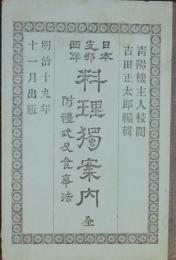 青陽樓主人校閲
吉田正太郎編輯
日本
支那
西洋
料理獨案内 全
附禮式及食事法
明治十九年
十一月出版